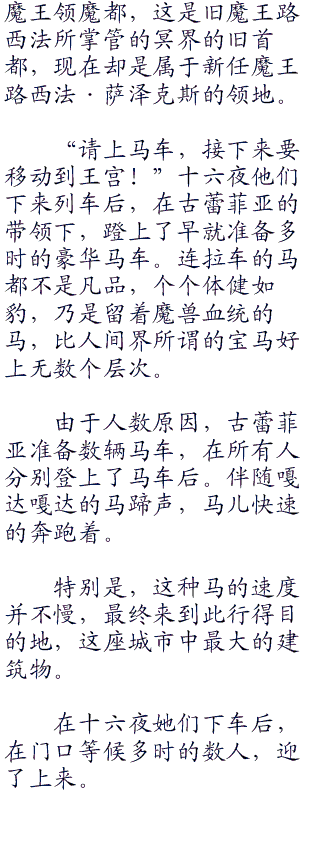 魔王领魔都，这是旧魔王路
西法所掌管的冥界的旧首
都，现在却是属于新任魔王
路西法·萨泽克斯的领地。
“请上马车，接下来要
移动到王宫！”十六夜他们
下来列车后，在古蕾菲亚的
带领下，蹬上了早就准备多
时的豪华马车。连拉车的马
都不是凡品，个个体健如
豹，乃是留着魔兽血统的
马，比人间界所谓的宝马好
上无数个层次。
由于人数原因，古蕾菲
亚准备数辆马车，在所有人
分别登上了马车后。伴随嘎
达嘎达的马蹄声，马儿快速
的奔跑着。
特别是，这种马的速度
并不慢，最终来到此行得目
的地，这座城市中最大的建
筑物。
在十六夜她们下车后，
在门口等候多时的数人，迎
了上来。